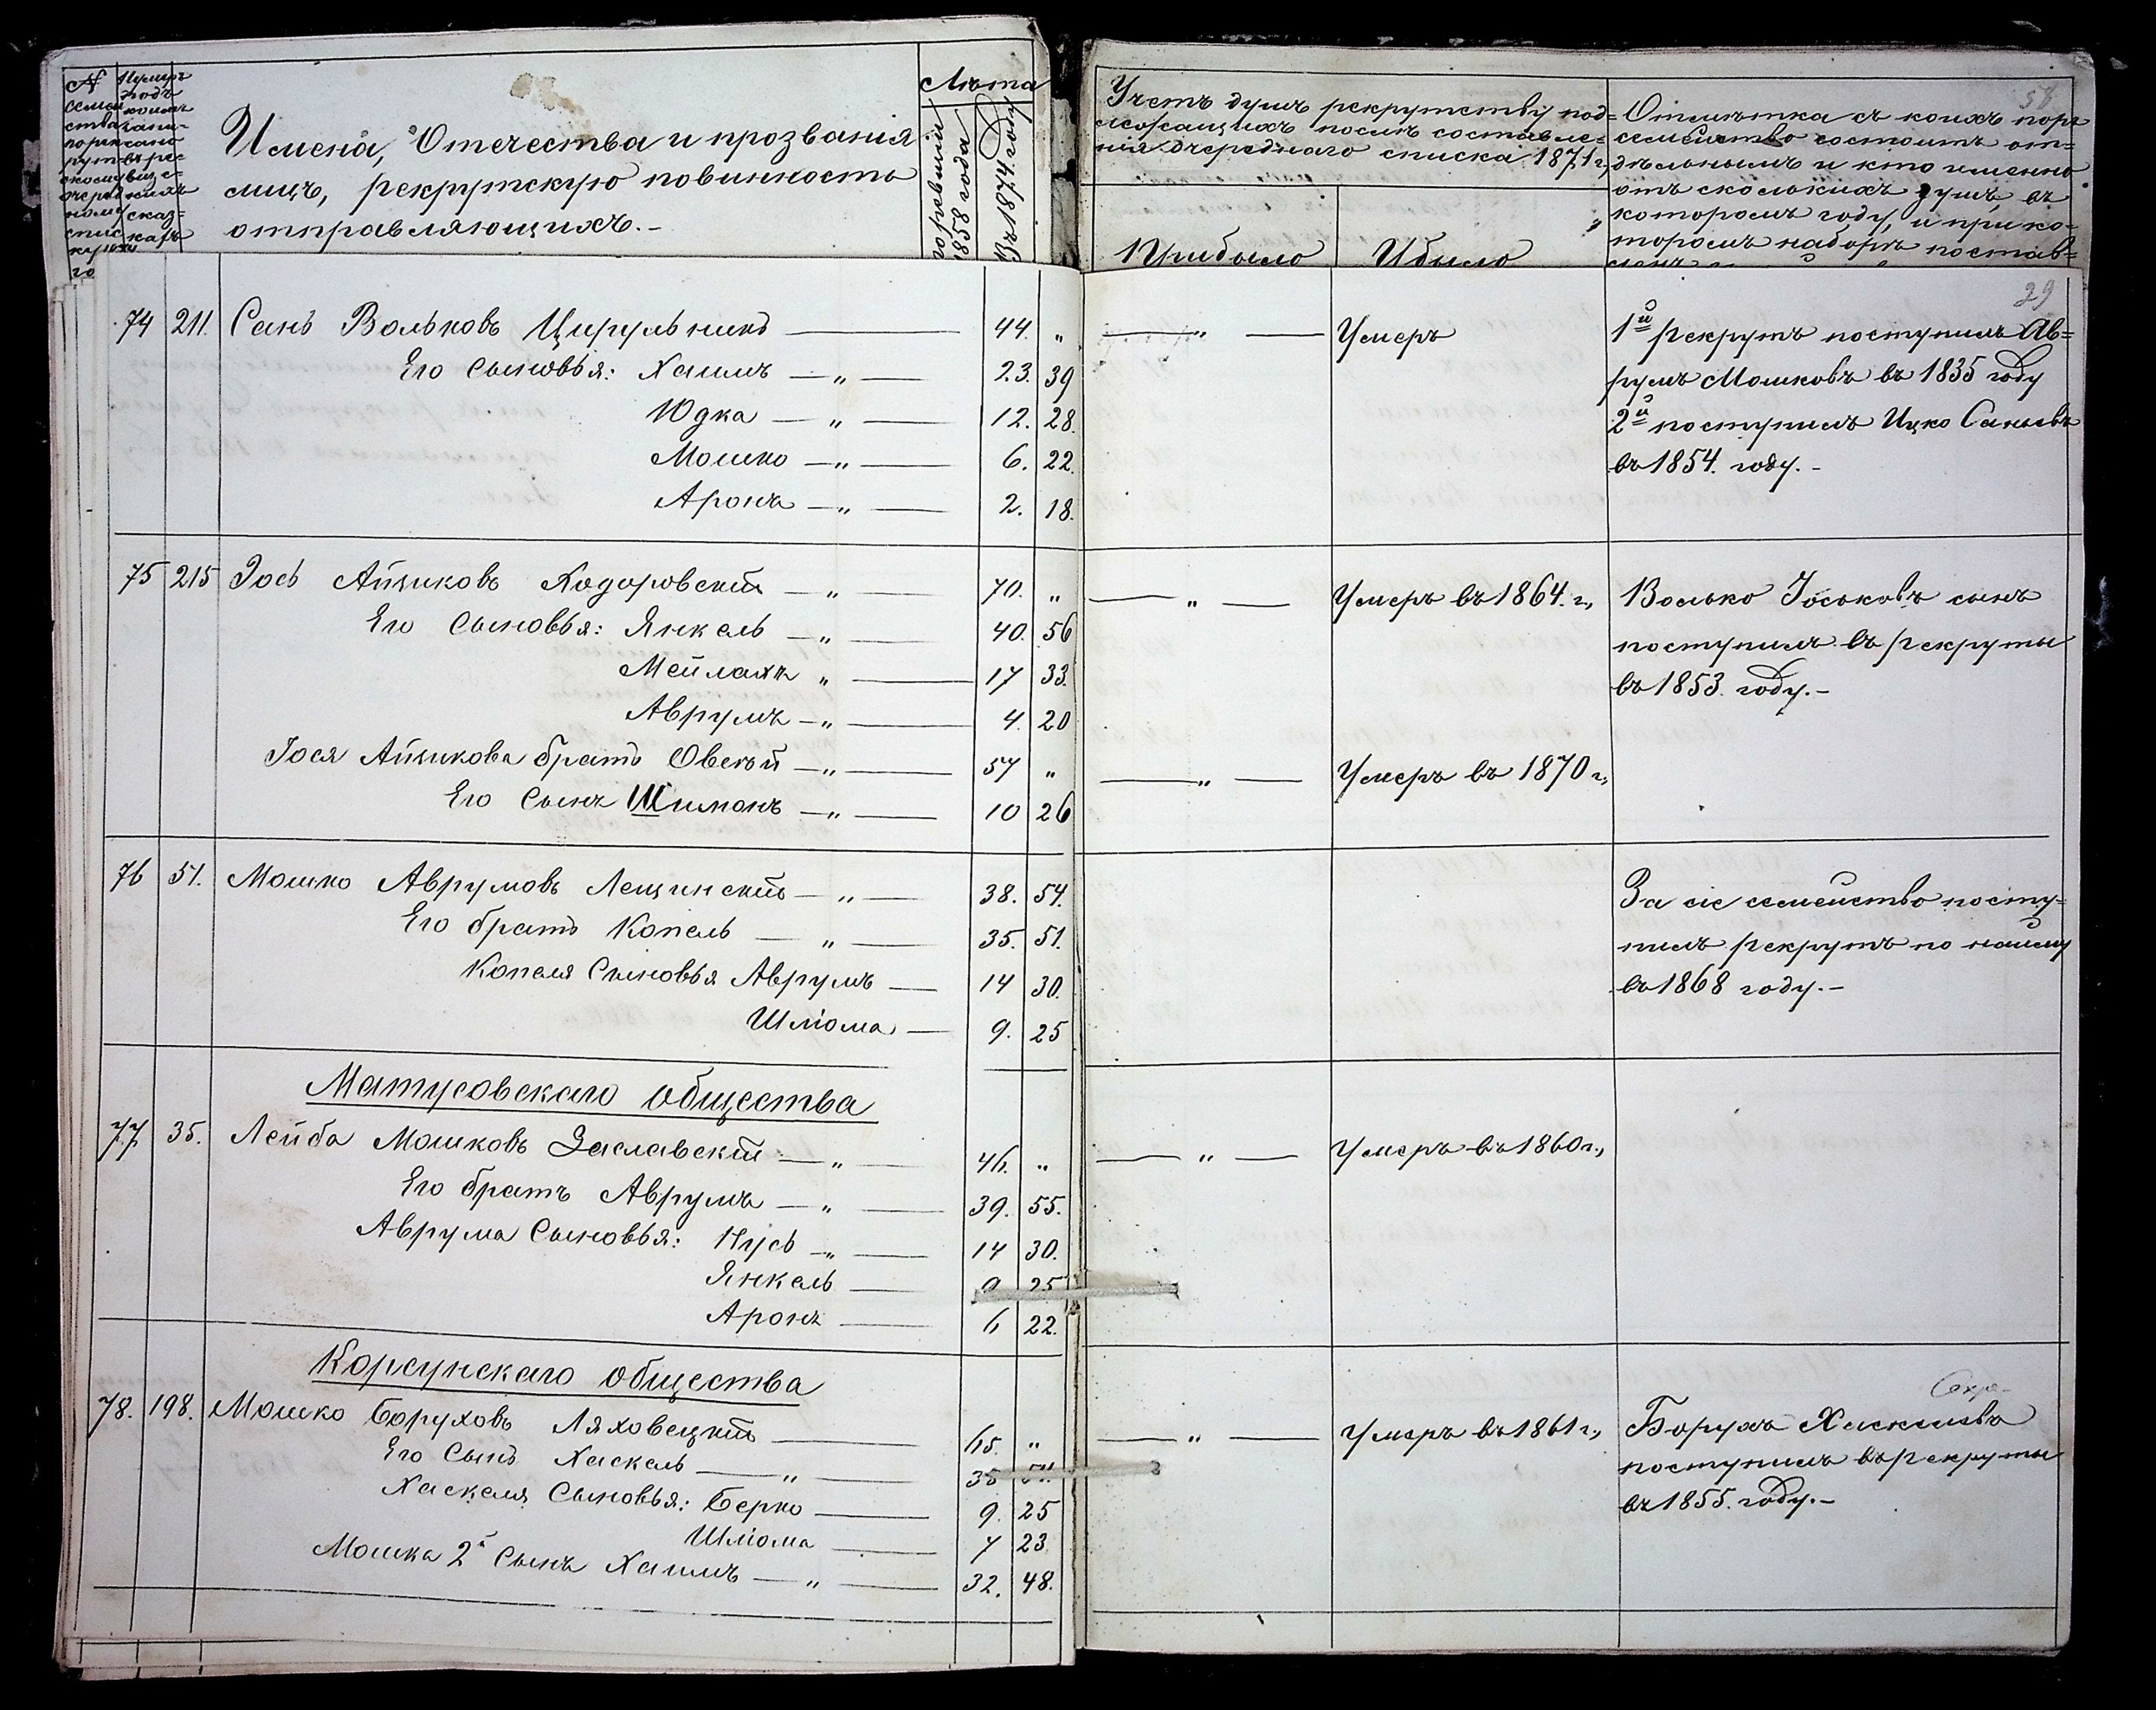 № семейства по рекрутскому очередному списку 1871 го
Нумеръ подъ коимъ записано въ ревизскихъ сказкахъ
Имена, Отчества и прозванія
лицъ, рекрутскую повинность
отправляющихъ.-
Лѣта
по ревизіи 1858 года
Въ 1874 году
Учетъ душъ рекрутству под-
лежащихъ послѣ составле-
нія очереднаго списка 1871 г.,
Прибыло
Убыло
58
Отмѣтка съ коихъ поръ
семейство состоитъ от-
дѣльнымъ и кто именно
отъ сколькихъ душъ, въ
которомъ году, и при ко-
торомъ наборѣ постав-
29
74 211. Сань Вольковъ Цирульникъ 44. „ — „ — Умеръ 1й рекрутъ поступилъ Ав=
Его Сыновья: Хаимъ — „ — 23. 39 румъ Мошковъ въ 1835 году
Юдка — „ — 12. 28. 2й поступилъ Ицко Саньевъ
Мошко — „ — 6. 22. въ 1854. году.-
Аронъ — „ — 2. 18.
75 215 Іось Айзиковъ Ходоровскій — „ — 70. „ — „ — Умеръ въ 1864. г., Волько Іоськовъ сынъ
Его Сыновья: Янкель — „ — 40. 56 поступилъ въ рекруты
Мейлахъ „ — 17 33. въ 1853. году.-
Аврумъ — „ — 4. 20
Іося Айзикова братъ Овсей — „ — 57 „ — „ — Умеръ въ 1870 г.,
Его Сынъ Шимонъ — „ — 10 26
76 51. Мошко Аврумовъ Лещинскій — „ — 38. 54. За сіе семейство посту-
Его братъ Копель — „ — 35. 51. пилъ рекрутъ по найму
Копеля Сыновья Аврумъ — 14 30. въ 1868 году.-
Шліома — 9. 25
Матусовскаго общества
77. 35. Лейба Мошковъ Заславскій — „ — 46. „ — „ — Умеръ въ 1860 г.,
Его братъ Аврумъ — „ — 39. 55.
Аврума Сыновья: Нусь — „ — 14 30.
Янкель — 9 25
Аронъ — 6 22.
Корсунскаго общества
78. 198. Мошко Боруховъ Ляховецкій — 65. „ — „ — Умеръ въ 1861 г., Борухъ Хаскелевъ
Его Сынъ Хаскель — „ — 35 51. поступилъ въ рекруты
Хаскеля Сыновья: Берко — 9. 25 въ 1855. году.-
Шліома — 7 23.
Мошка 2й Сынъ Хаимъ — „ — 32. 48.